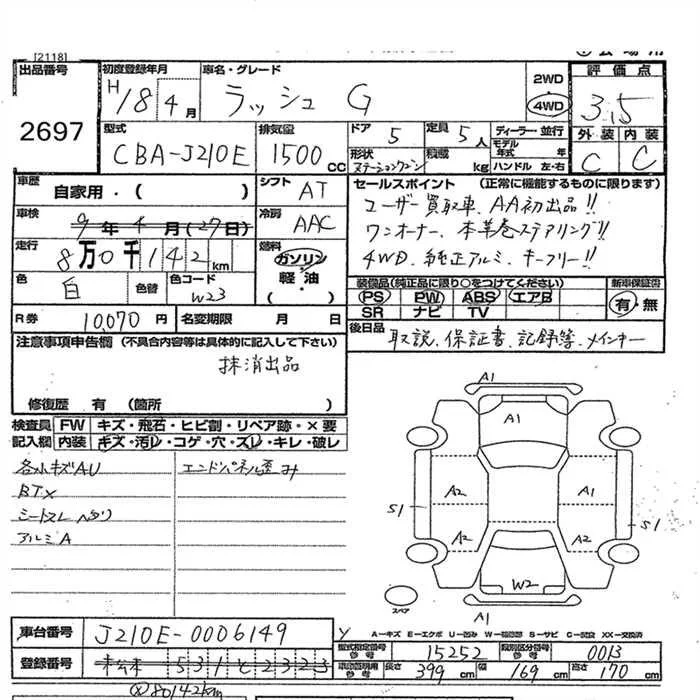 [2118]
出品番号
2697
初度登録年月
H18年4月
車名・グレード
ラッシュ G
2WD
4WD
評価点
3.5
外装 内装
C C
型式
CBA-J210E
排気量
1500 CC
ドア 5
定員 5人
形状 ステーションワゴン
積載 kg
ディーラー・並行
モデル年式 年
ハンドル 左・右
車歴
自家用・( )
シフト AT
車検
9年4月(27日)
冷房 AAC
走行
8万0千142km
燃料
ガソリン
軽油
( )
色
白
色替
色コード
W23
セールスポイント (正常に機能するものに限ります)
ユーザー買取車、AA初出品!!
ワンオーナー、本革巻ステアリング!!
4WD、純正アルミ、キーフリー!!
装備品(純正品に限り○をつけてください)
PS PW ABS エアB
SR ナビ TV
新車保証書
有・無
R券 10,070円
名変期限 月 日
後日品
取説、保証書、記録簿、メインキー
注意事項申告欄 (不具合内容等は具体的に記入して下さい)
抹消出品
修復歴 有 (箇所 )
検査員記入欄
FW キズ・飛石・ヒビ割・リペア跡・×要
内装 キズ・汚レ・コゲ・穴・スレ・キレ・破レ
各小キズAU
エンドパネル歪み
BT×
シートスレ ヘタリ
アルミA
A1
A1
A2
A1
S1
S1
A2
A2
W2
A1
スペア
車台番号
J210E-0006149
登録番号
531 と 2323
A-キズ E-エクボ U-凹み W-補修跡 S-サビ C-腐食 XX-交換済
型式指定番号 参考
15252
類別区分番号 参考
0013
車庫証明用 参考
長さ 399cm
幅 169cm
高さ 170cm
80142km